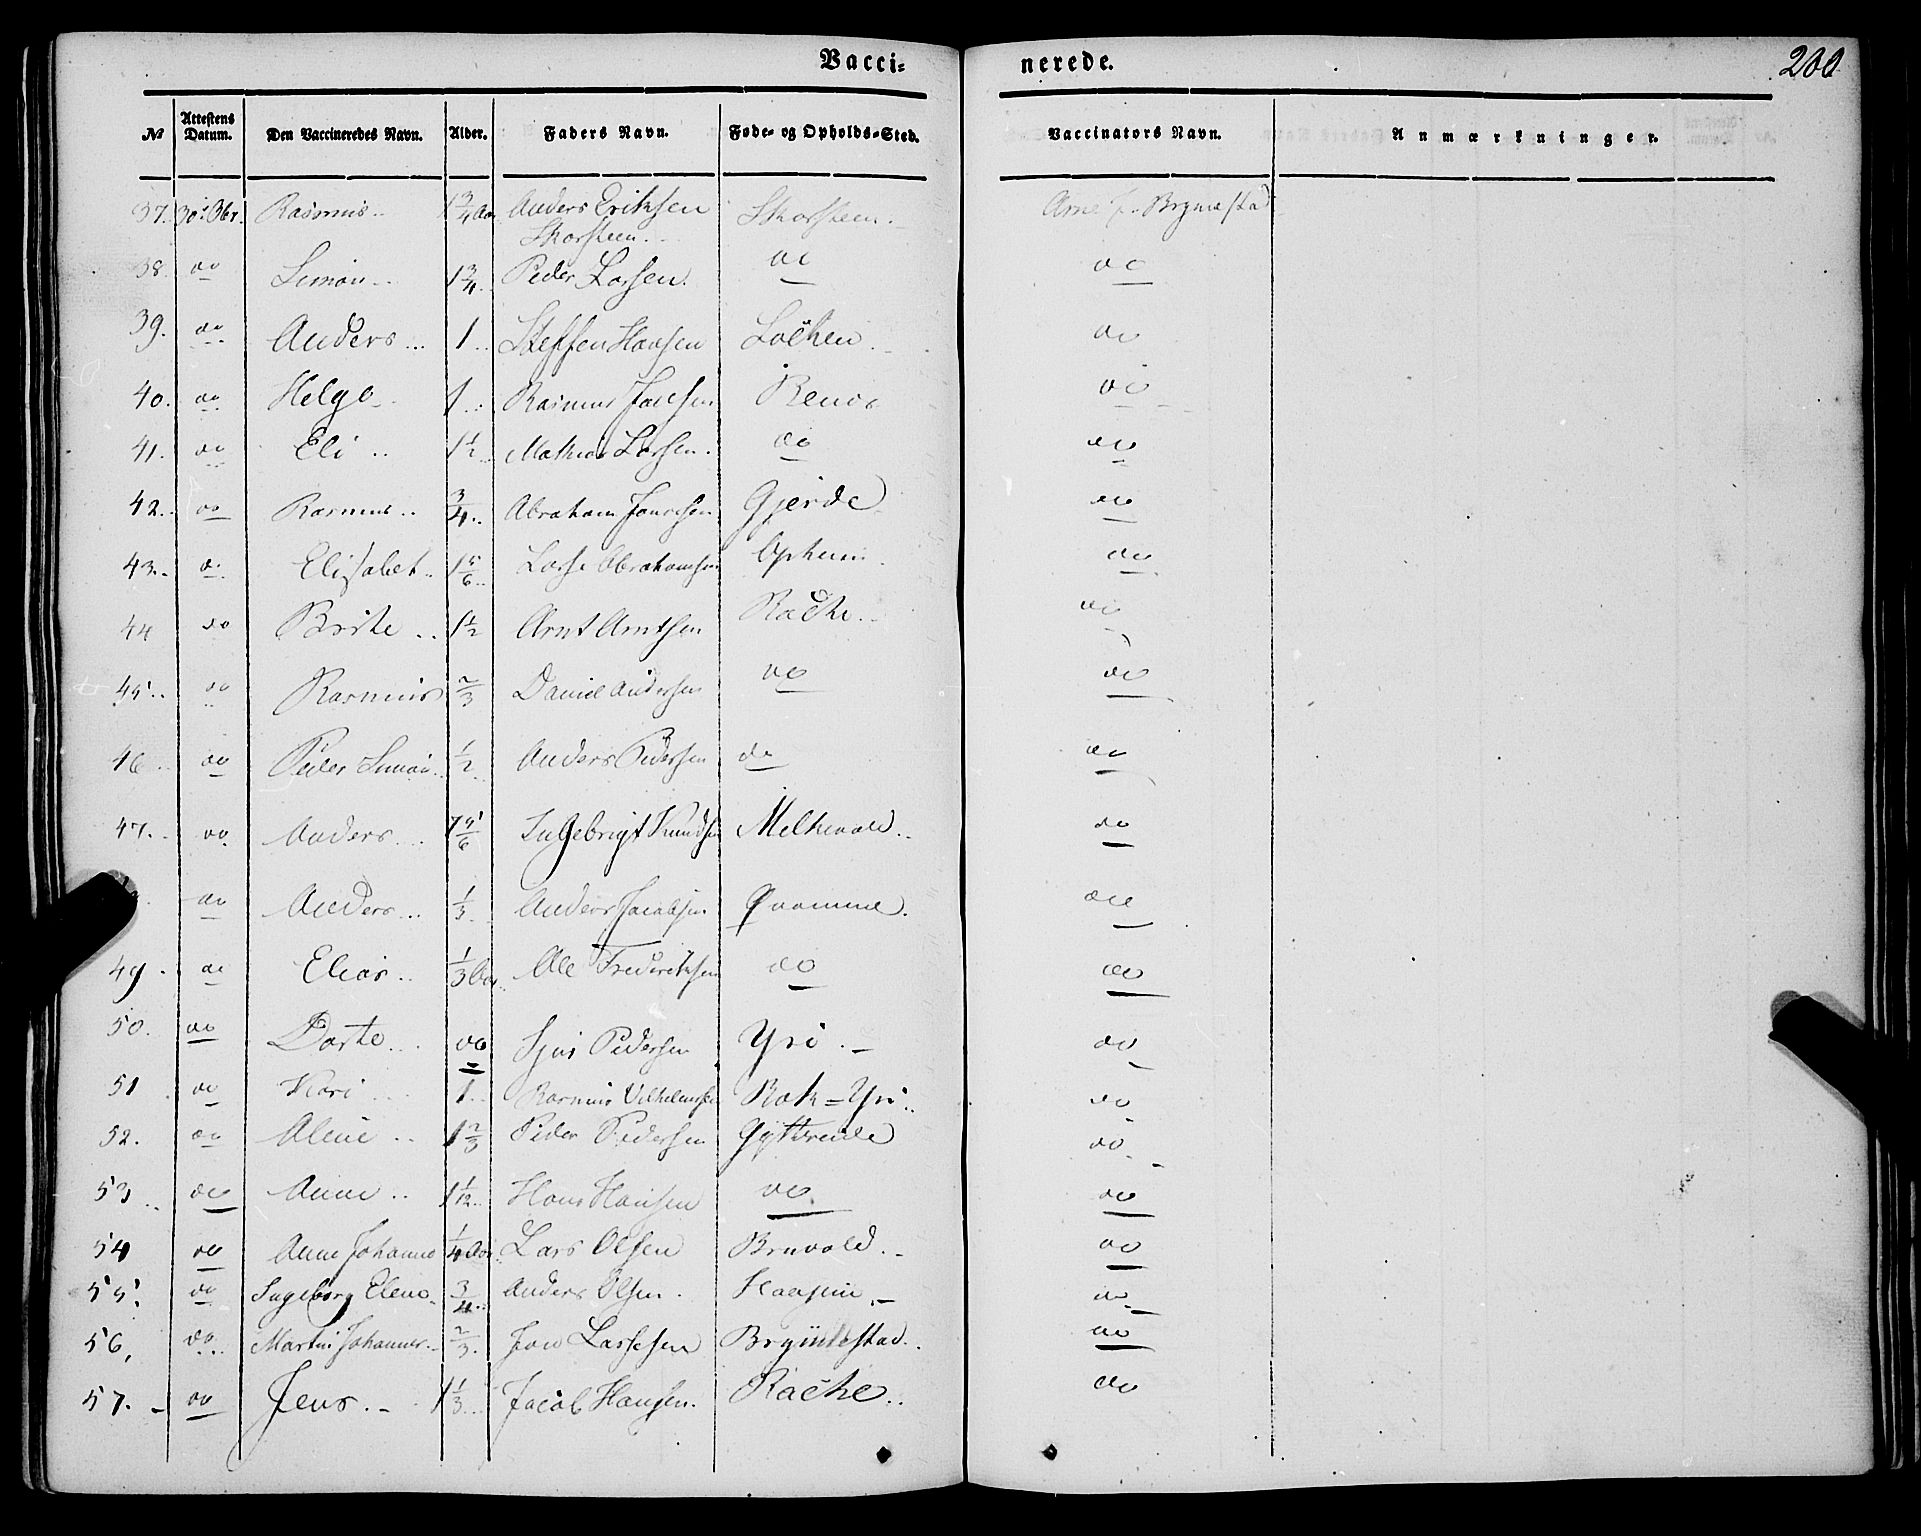 Vacci-
nerede.
200
№ Attestens Datum. Den Vaccineredes Navn. Alder. Faders Navn. Føde- og Opholds-Sted. Vaccinators Navn. Anmærkninger.
37. 30. Rasmus .. 1 3/4 Aar Anders Eriksen Skorsteen .. Arne Brynestad
Skorsteen ..
38. do Simon .. 1 3/4 .. Peder Larsen. do do
39. do Anders ... 1 .. Steffen Hansen do
40. do Helge 1 .. Rasmus do
41. do Eli .. 1 1/2 .. Mathias Larsen. do do
42. do Rasmus .. 3/4 .. Abraham Gjerde do
43. do Elisabet .. 1 5/6 .. Lasse Abrahamsen Opheim do
44 do Brite .. 1 1/2 Arnt Arntsen Racke .. do
45. do Rasmus 2/3 Daniel Andersen do do
46 do Peder Simon .. 1/2 Anders Pedersen do do
47. do Anders ... 5/6 Ingebrigt Knudsen Melkevold .. do
do Anders ... 1/3 Anders Jacobsen Qvamme. do
49. do Elias .. 1/3 Aar .. Ole Frederiksen do do
50. do Dorte .. do Sjur Pedersen Yri. do
51 do Kari 1 .. Rasmus Vilhelmsen Yri .. do
52. do Alene .. 1 2/3 Peder Pedersen Gyttreide do
53 .. do Anne .. 1 1/12 .. Hans Hansen do do
54 do Anne Johanne 1/4 Aar. Lars Olsen Bruvold. do
55. do Ingeborg Elene 3/4 .. Anders Olsen. do
56, do Martin Johannes .. 2/3. Jon Lassesen Bryniestad .. do
57. do Jens. 1 1/3 ... Jacob Hansen. Racke .. do